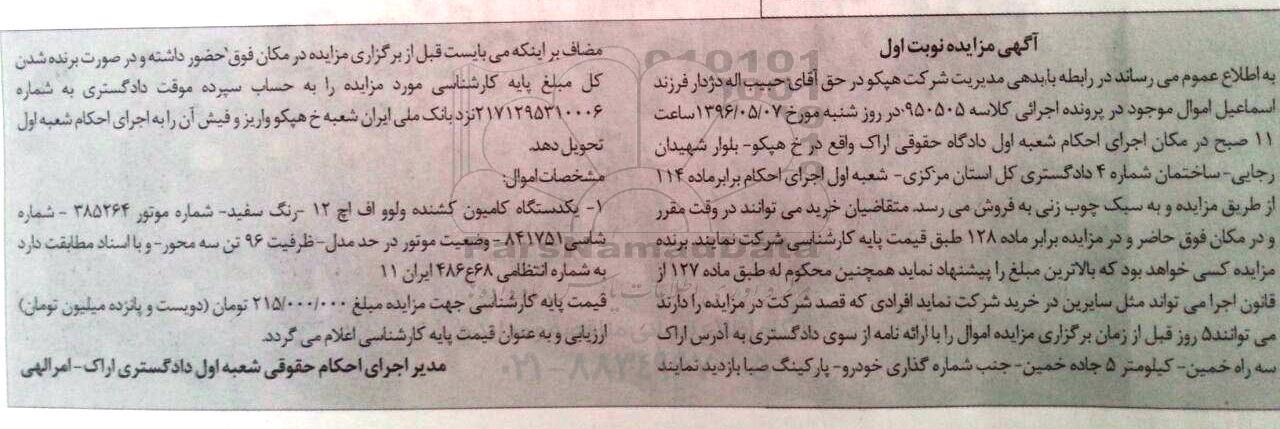 آگهی مزایده نوبت اول
به اطلاع عموم می رساند در رابطه با بدهی مدیریت شرکت هپکو در حق آقای حبیب اله دژدار فرزند
اسماعیل اموال موجود در پرونده اجرائی کلاسه ۹۵۰۵۰۵ در روز شنبه مورخ ۱۳۹۶/۰۵/۰۷ ساعت
۱۱ صبح در مکان اجرای احکام شعبه اول دادگاه حقوقی اراک واقع در خ هپکو- بلوار شهیدان
رجایی- ساختمان شماره ۴ دادگستری کل استان مرکزی- شعبه اول اجرای احکام برابر ماده ۱۱۴
از طریق مزایده و به سبک چوب زنی به فروش می رسد. متقاضیان خرید می توانند در وقت مقرر
و در مکان فوق حاضر و در مزایده برابر ماده ۱۲۸ طبق قیمت پایه کارشناسی شرکت نمایند. برنده
مزایده کسی خواهد بود که بالاترین مبلغ را پیشنهاد نماید همچنین محکوم له طبق ماده ۱۲۷ از
قانون اجرا می تواند مثل سایرین در خرید شرکت نماید افرادی که قصد شرکت در مزایده را دارند
می توانند۵ روز قبل از زمان برگزاری مزایده اموال را با ارائه نامه از سوی دادگستری به آدرس اراک
سه راه خمین- کیلومتر ۵ جاده خمین- جنب شماره گذاری خودرو- پارکینگ صبا بازدید نمایند
مضاف بر اینکه می بایست قبل از برگزاری مزایده در مکان فوق حضور داشته و در صورت برنده شدن
کل مبلغ پایه کارشناسی مورد مزایده را به حساب سپرده موقت دادگستری به شماره
۲۱۷۱۲۹۵۳۱۰۰۰۶نزد بانک ملی ایران شعبه خ هپکو واریز و فیش آن را به اجرای احکام شعبه اول
تحویل دهد.
مشخصات اموال:
۱- یکدستگاه کامیون کشنده ولوو اف اچ ۱۲ -رنگ سفید- شماره موتور ۳۸۵۲۶۴ - شماره
شاسی۸۴۱۷۵۱ - وضعیت موتور در حد مدل- ظرفیت ۹۶ تن سه محور- و با اسناد مطابقت دارد
به شماره انتظامی ۶۸ع۴۸۶ ایران ۱۱
قیمت پایه کارشناسی جهت مزایده مبلغ ۲۱۵/۰۰۰/۰۰۰ تومان (دویست و پانزده میلیون تومان)
ارزیابی و به عنوان قیمت پایه کارشناسی اعلام می گردد.
مدیر اجرای احکام حقوقی شعبه اول دادگستری اراک- امرالهی
ParsNamadData